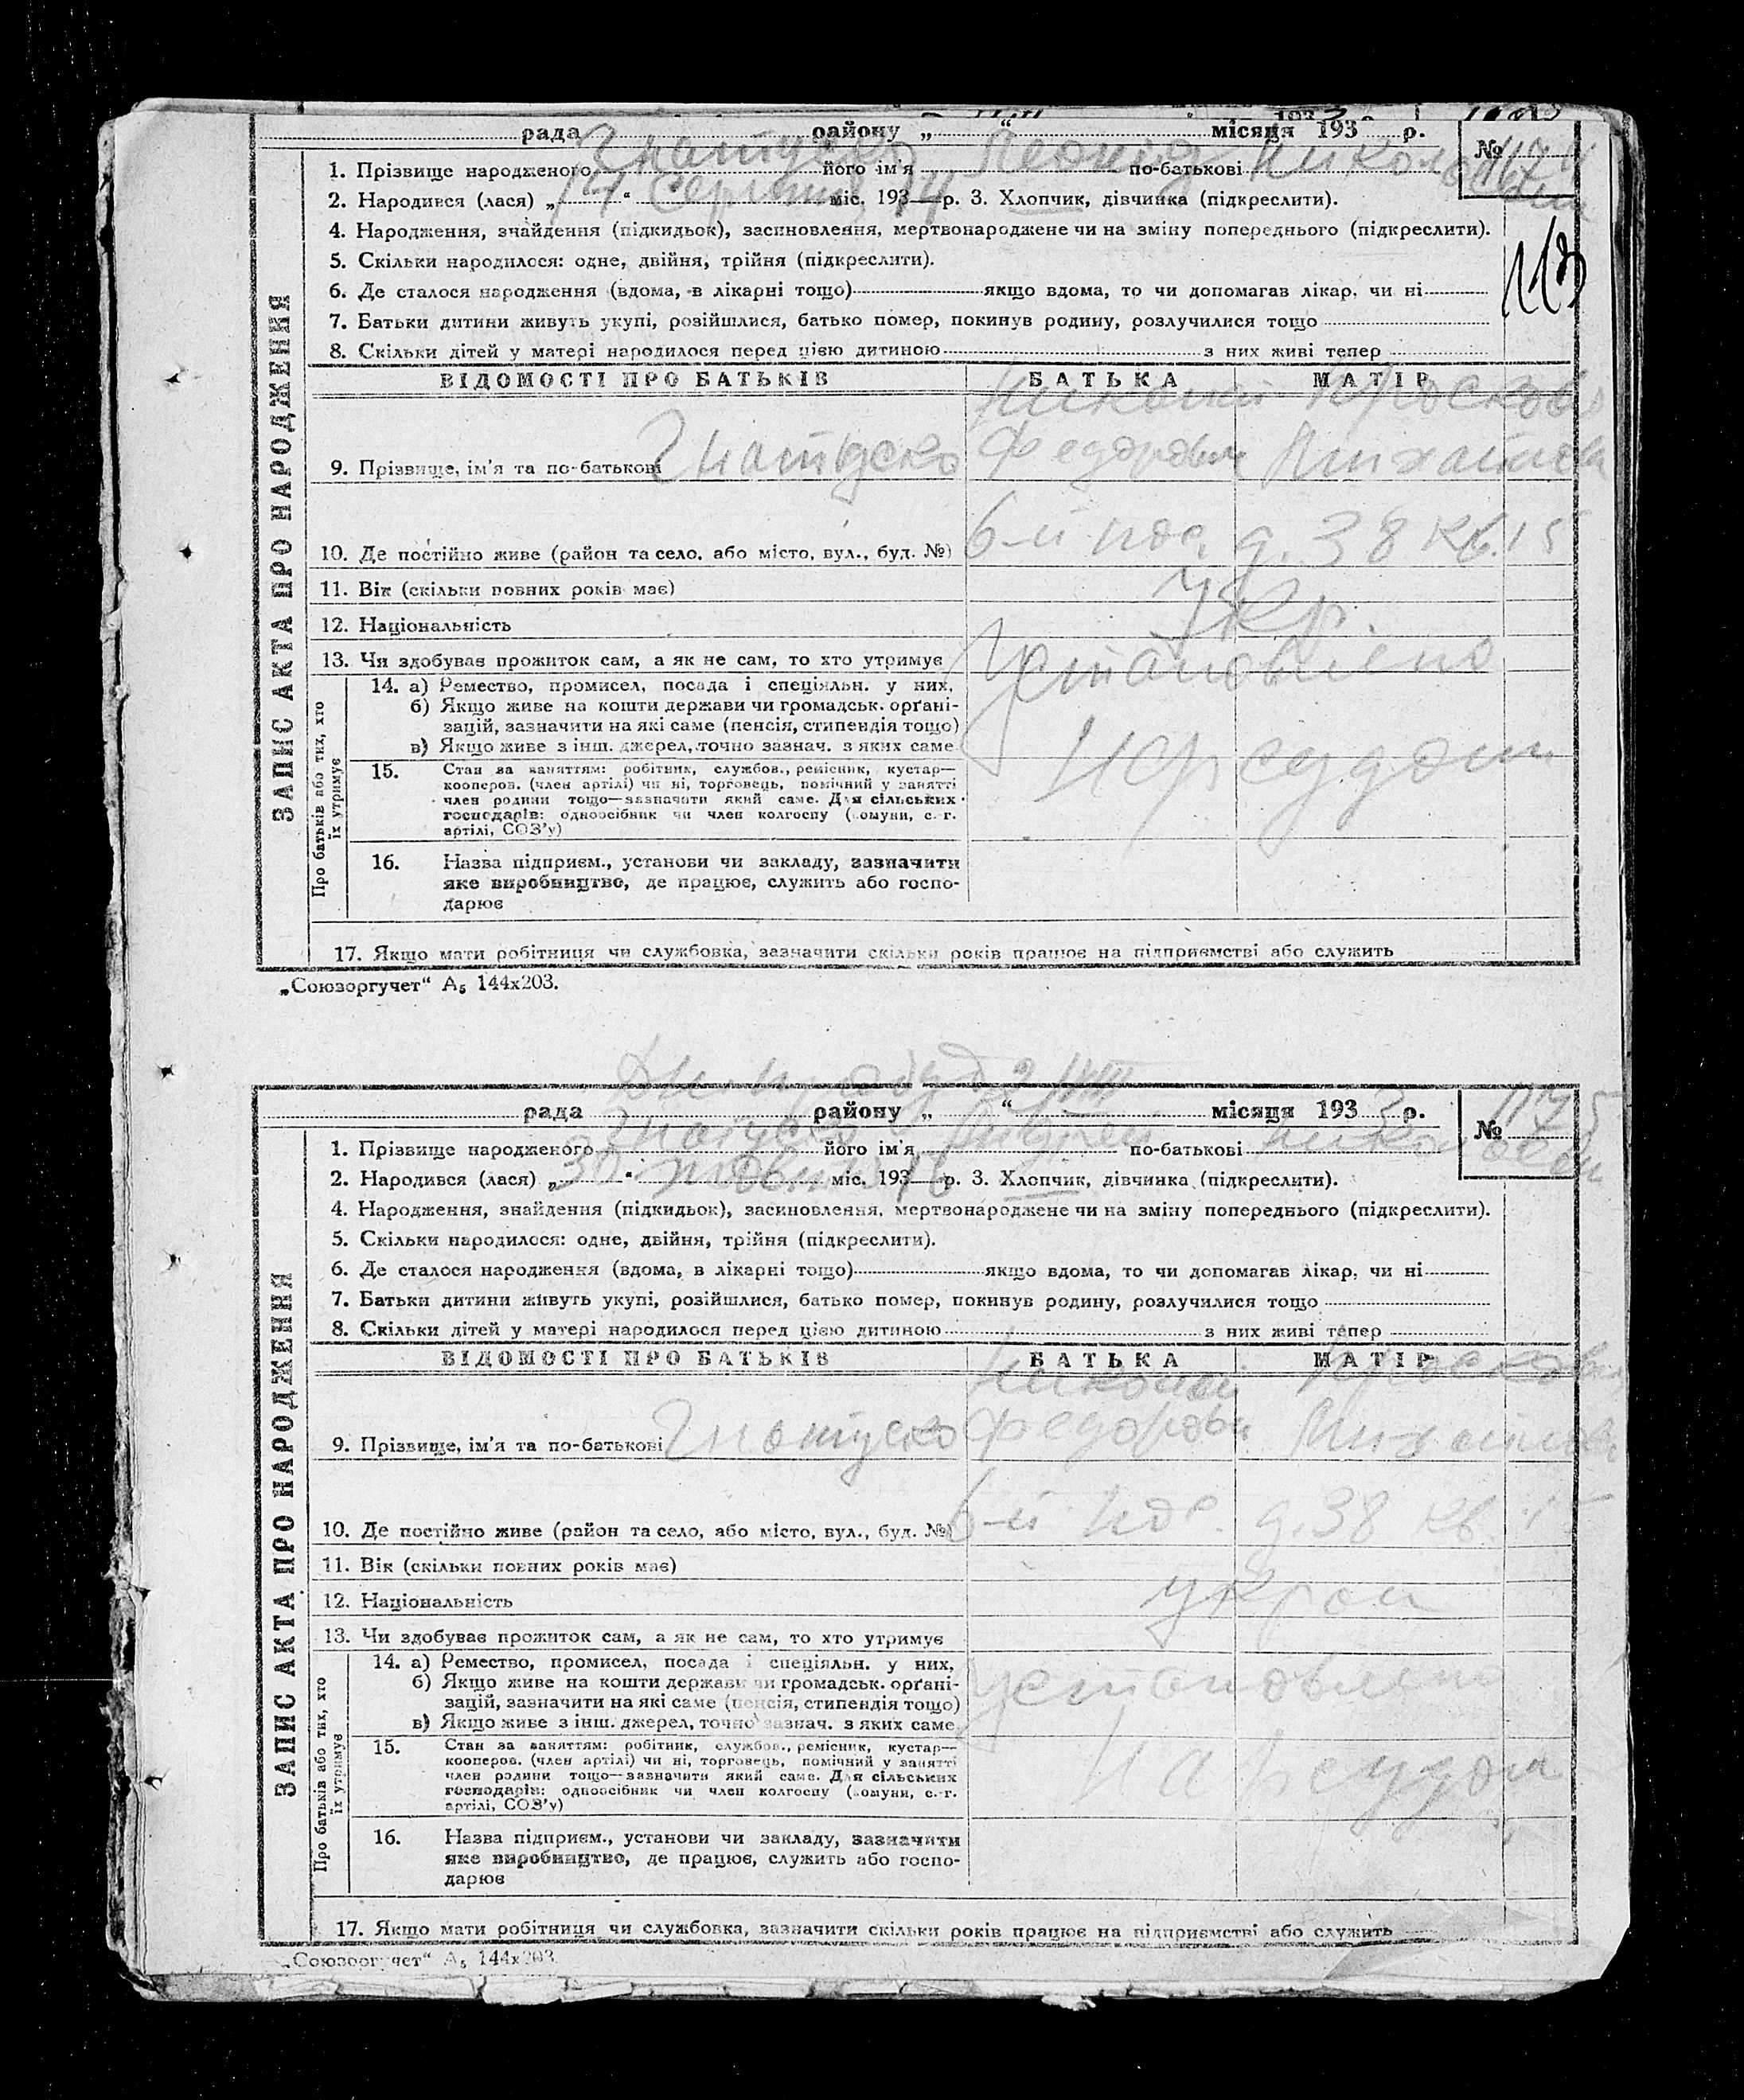 рада району „ “ місяця 193 р.
№ 1174
1. Прізвище народженого його ім'я Леонид по-батькові
2. Народився (лася) „ 14 “ Серпня міс. 193 14 р. 3. Хлопчик, дівчинка (підкреслити).
4. Народження, знайдення (підкидьок), засиновлення, мертвонароджене чи на зміну попереднього (підкреслити).
5. Скільки народилося: одне, двійня, трійня (підкреслити).
6. Де сталося народження (вдома, в лікарні тощо) якщо вдома, то чи допомагав лікар, чи ні
7. Батьки дитини живуть укупі, розійшлися, батько помер, покинув родину, розлучилися тощо
8. Скільки дітей у матері народилося перед цією дитиною з них живі тепер
ЗАПИС АКТА ПРО НАРОДЖЕННЯ
ВІДОМОСТІ ПРО БАТЬКІВ БАТЬКА МАТІР
9. Прізвище, ім'я та по-батькові
10. Де постійно живе (район та село, або місто, вул., буд. №) 6-й д. 38 кв. 15
11. Вік (скільки повних років має)
12. Національність Укр.
13. Чи здобуває прожиток сам, а як не сам, то хто утримує
Установлено
Нарсудом
Про батьків або тих, хто їх утримує
14. а) Ремество, промисел, посада і спеціяльн. у них,
б) Якщо живе на кошти держави чи громадськ. орґані-
зацій, зазначити на які саме (пенсія, стипендія тощо)
в) Якщо живе з інш. джерел, точно зазнач. з яких саме
15. Стан за заняттям: робітник, службов., ремісник, кустар—
кооперов. (член артілі) чи ні, торговець, помічний у занятті
член родини тощо—зазначити який саме. Для сільських
господарів: одноосібник чи член колгоспу (комуни, с.-г.
артілі, СОЗ'у)
16. Назва підприєм., установи чи закладу, зазначити
яке виробництво, де працює, служить або госпо-
дарює
17. Якщо мати робітниця чи службовка, зазначити скільки років працює на підприємстві або служить
„Союзоргучет“ А₅ 144х203.
рада району „ “ місяця 193 3 р.
№ 1175
1. Прізвище народженого його ім'я по-батькові
2. Народився (лася) „ 30 “ жовтня міс. 193 16 р. 3. Хлопчик, дівчинка (підкреслити).
4. Народження, знайдення (підкидьок), засиновлення, мертвонароджене чи на зміну попереднього (підкреслити).
5. Скільки народилося: одне, двійня, трійня (підкреслити).
6. Де сталося народження (вдома, в лікарні тощо) якщо вдома, то чи допомагав лікар, чи ні
7. Батьки дитини живуть укупі, розійшлися, батько помер, покинув родину, розлучилися тощо
8. Скільки дітей у матері народилося перед цією дитиною з них живі тепер
ЗАПИС АКТА ПРО НАРОДЖЕННЯ
ВІДОМОСТІ ПРО БАТЬКІВ БАТЬКА МАТІР
9. Прізвище, ім'я та по-батькові
10. Де постійно живе (район та село, або місто, вул., буд. №) 6-й д. 38 кв. 15
11. Вік (скільки повних років має)
12. Національність
13. Чи здобуває прожиток сам, а як не сам, то хто утримує
Установлено
Нарсудом
Про батьків або тих, хто їх утримує
14. а) Ремество, промисел, посада і спеціяльн. у них,
б) Якщо живе на кошти держави чи громадськ. орґані-
зацій, зазначити на які саме (пенсія, стипендія тощо)
в) Якщо живе з інш. джерел, точно зазнач. з яких саме
15. Стан за заняттям: робітник, службов., ремісник, кустар—
кооперов. (член артілі) чи ні, торговець, помічний у занятті
член родини тощо—зазначити який саме. Для сільських
господарів: одноосібник чи член колгоспу (комуни, с.-г.
артілі, СОЗ'у)
16. Назва підприєм., установи чи закладу, зазначити
яке виробництво, де працює, служить або госпо-
дарює
17. Якщо мати робітниця чи службовка, зазначити скільки років працює на підприємстві або служить
„Союзоргучет“ А₅ 144х203